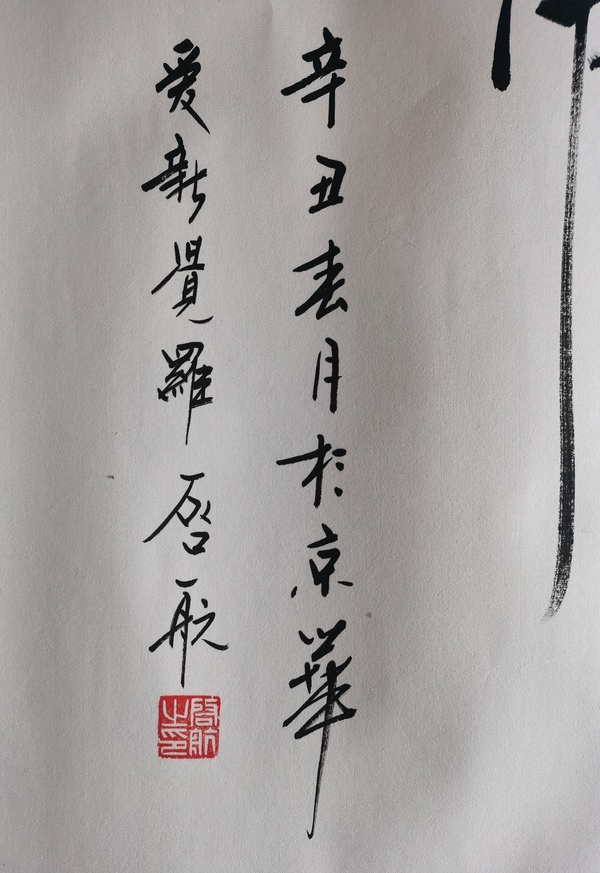 辛丑春月於京華
愛新覺羅啓航
啓航之印